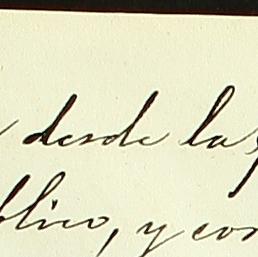 desde la
blico, y con